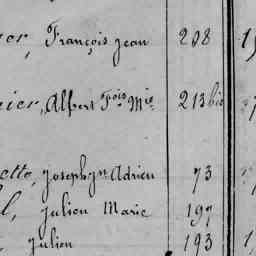 François Jean 208
Alfert Fois Mie 213 bis
Joseph Jn Adrien 73
Julien Marie 197
Julien 193